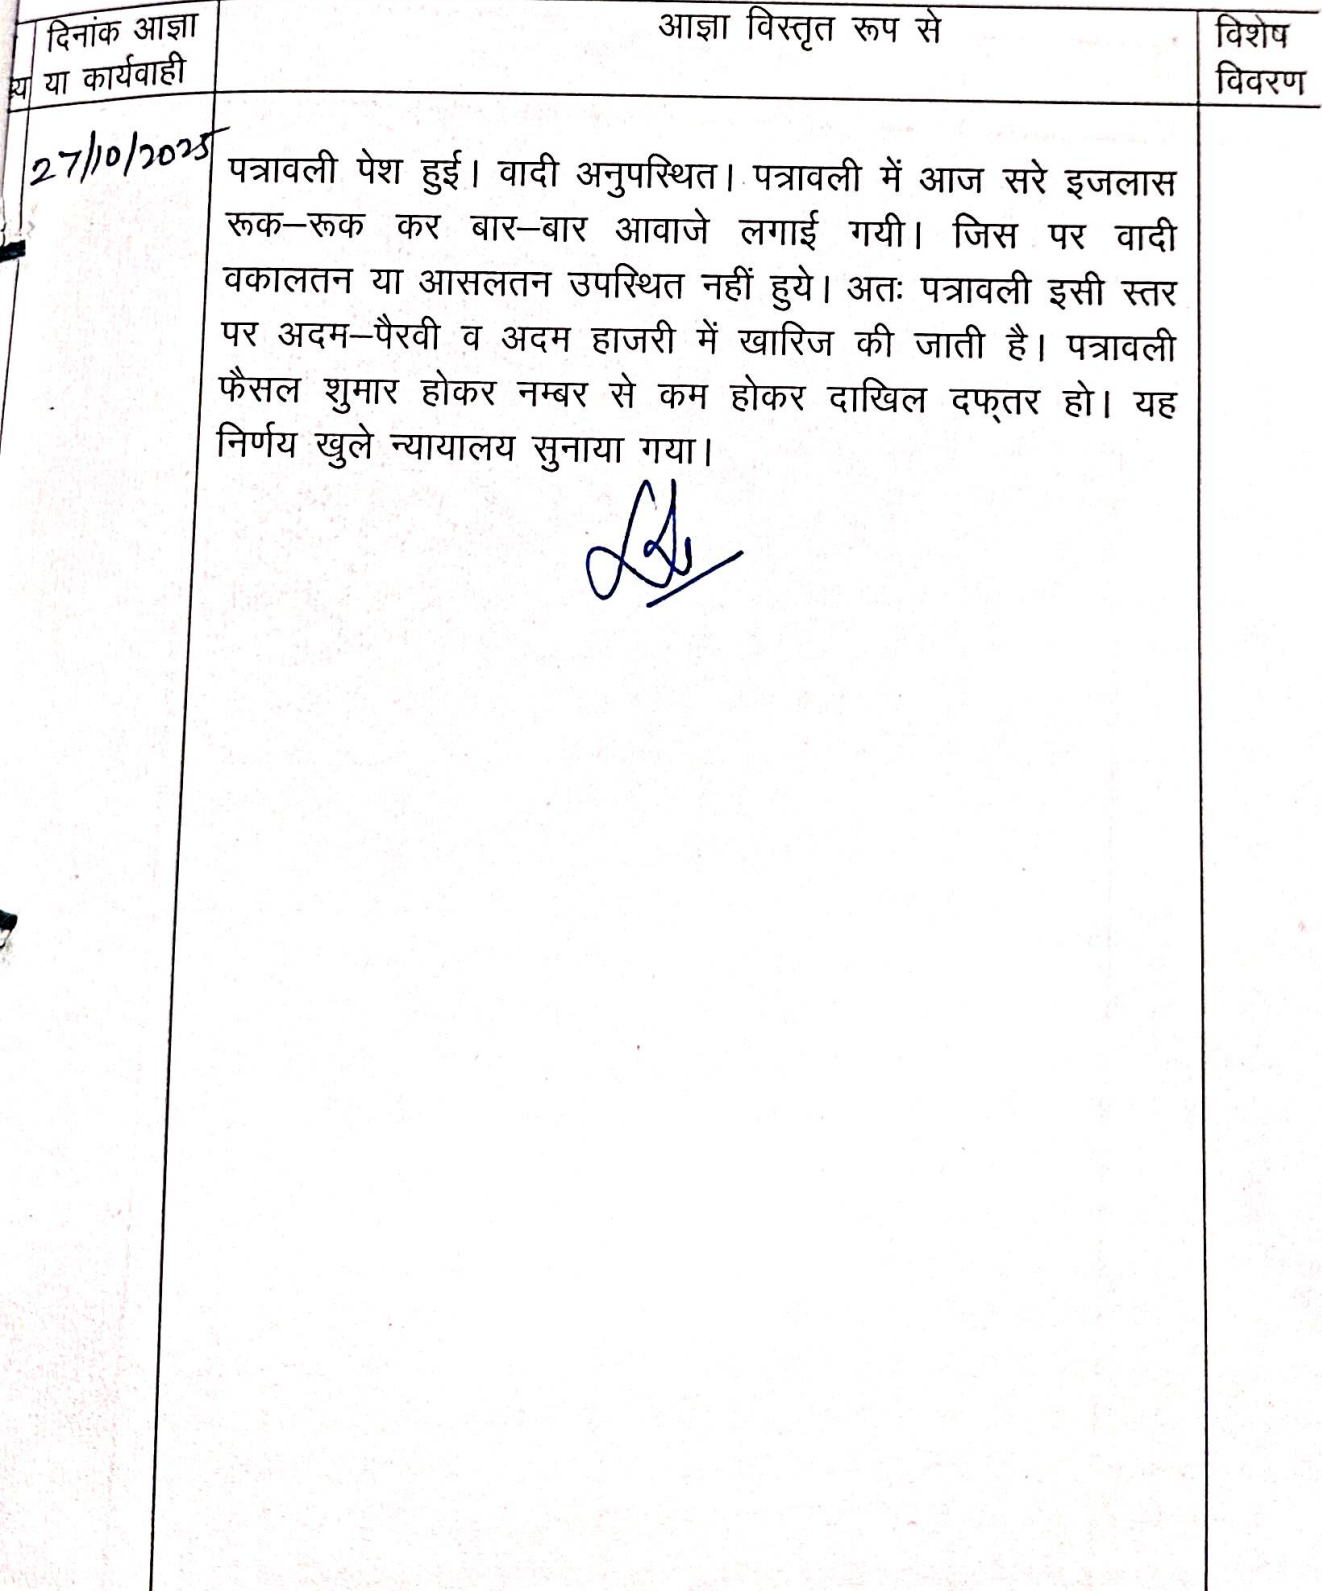 दिनांक आज्ञा
या कार्यवाही
आज्ञा विस्तृत रूप से
विशेष
विवरण
27/10/2025
पत्रावली पेश हुई। वादी अनुपस्थित। पत्रावली में आज सरे इजलास
रूक–रूक कर बार–बार आवाजे लगाई गयी। जिस पर वादी
वकालतन या आसलतन उपस्थित नहीं हुये। अतः पत्रावली इसी स्तर
पर अदम–पैरवी व अदम हाजरी में खारिज की जाती है। पत्रावली
फैसल शुमार होकर नम्बर से कम होकर दाखिल दफ्तर हो। यह
निर्णय खुले न्यायालय सुनाया गया।